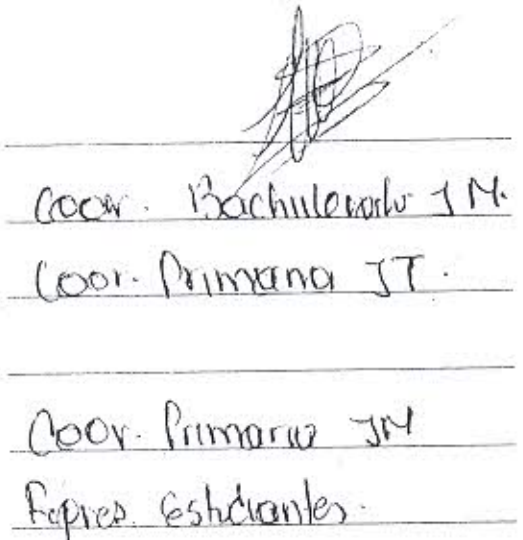 Coor. Bachillerato JM.
Coor. Primaria JT.
Coor. Primaria JM
Repres. Estudiantes.